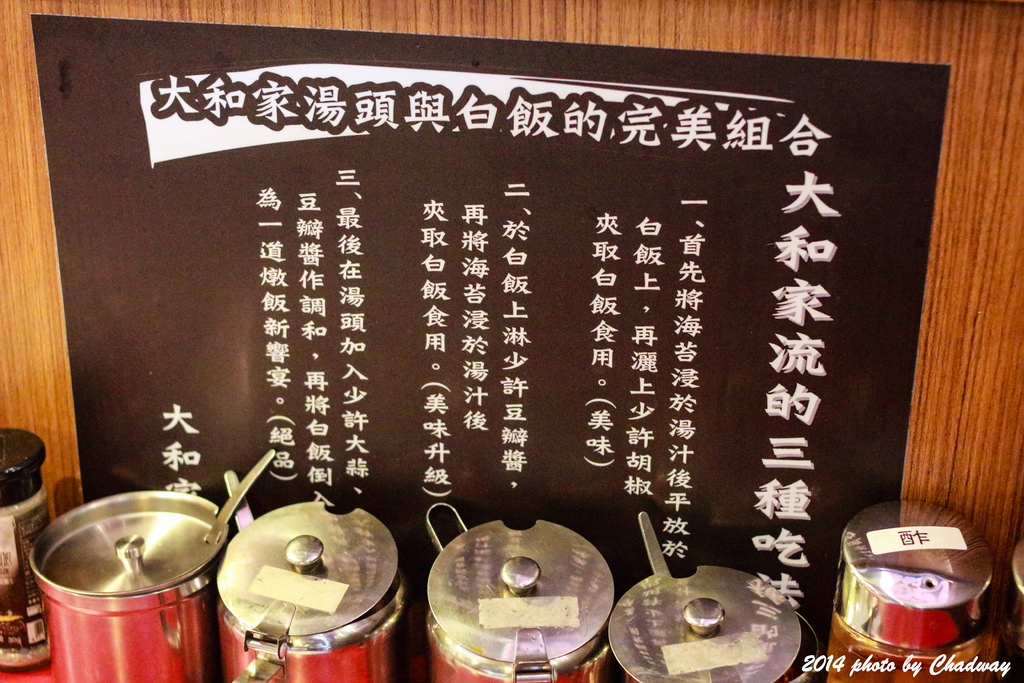 大和家湯頭與白飯的完美組合
大和家流的三種吃法
一、首先將海苔浸於湯汁後平放於
白飯上，再灑上少許胡椒
夾取白飯食用。(美味)
二、於白飯上淋少許豆瓣醬，
再將海苔浸於湯汁後
夾取白飯食用。(美味升級)
三、最後在湯頭加入少許大蒜、
豆瓣醬作調和，再將白飯倒入
為一道燉飯新響宴。(絕品)
大和家
酢
2014 photo by Chadway